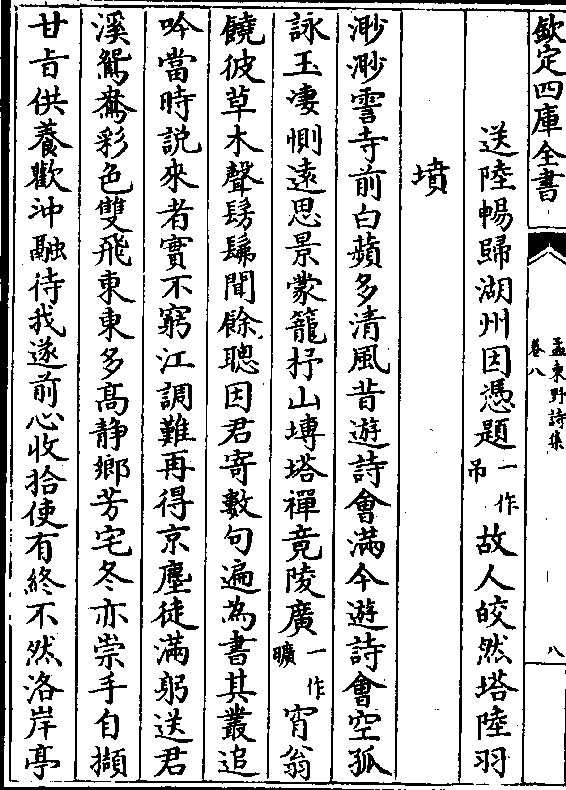 欽定四庫全書
孟東野詩集
卷八
八
送陸暢歸湖州因憑題一作吊故人皎然塔陸羽
墳
渺渺霅寺前白蘋多清風昔遊詩會滿今遊詩會空孤
詠玉凄惻遠思景蒙籠抒山塼塔禪竟陵廣一作曠宵翁
饒彼草木聲髣髴聞餘聰因君寄數句遍為書其叢追
吟當時說來者實不窮江調難再得京塵徒滿躬送君
溪鴛鴦彩色雙飛東東多高静鄉芳宅冬亦崇手自擷
甘旨供養歡沖融待我遂前心收拾使有終不然洛岸亭